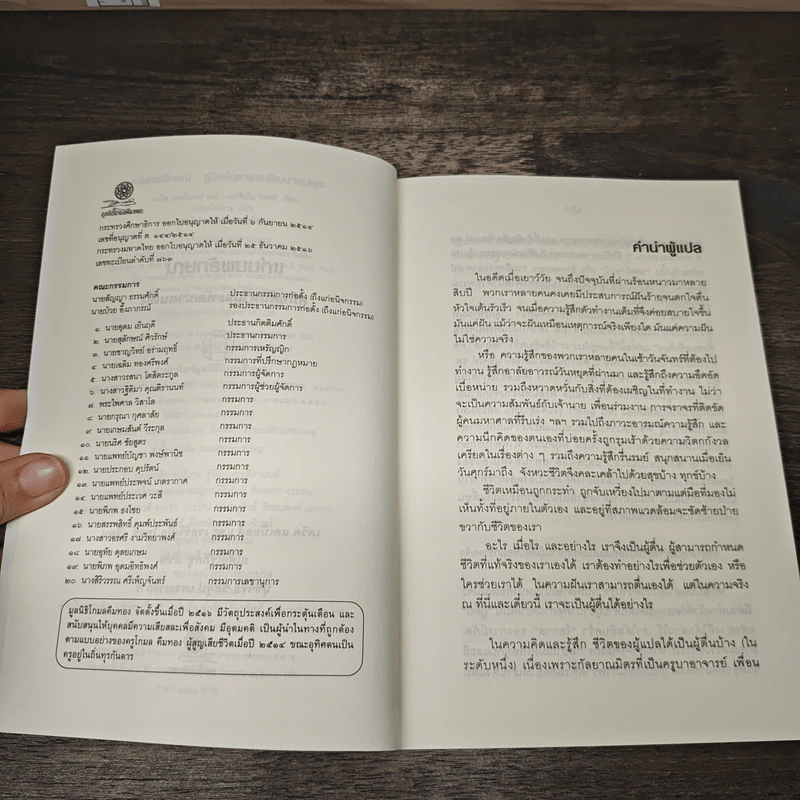 มูลนิธิโกมลคีมทอง
กระทรวงศึกษาธิการ ออกใบอนุญาตให้ เมื่อวันที่ ๖ กันยายน ๒๕๑๔
เลขที่อนุญาตที่ ต. ๑๔๔/๒๕๑๔
กระทรวงมหาดไทย ออกใบอนุญาตให้ เมื่อวันที่ ๒๕ ธันวาคม ๒๕๑๖
เลขทะเบียนลำดับที่ ๗๖๓
คณะกรรมการ
นายสัญญา ธรรมศักดิ์ ประธานกรรมการก่อตั้ง (ถึงแก่อนิจกรรม)
นายป๋วย อึ๊งภากรณ์ รองประธานกรรมการก่อตั้ง (ถึงแก่อนิจกรรม)
๑. นายอุดม เย็นฤดี ประธานกิตติมศักดิ์
๒. นายสุลักษณ์ ศิวรักษ์ ประธานกรรมการ
๓. นายชาญวิทย์ อร่ามฤทธิ์ กรรมการเหรัญญิก
๔. นายเฉลิม ทองศรีพงศ์ กรรมการที่ปรึกษากฎหมาย
๕. นางสาวรสนา โตสิตระกูล กรรมการผู้จัดการ
๖. นางสาวฐิติมา คุณติรานนท์ กรรมการผู้ช่วยผู้จัดการ
๗. พระไพศาล วิสาโล กรรมการ
๘. นายกรุณา กุศลาสัย กรรมการ
๙. นายเกษมสันต์ วีระกุล กรรมการ
๑๐. นายนริศ ชัยสูตร กรรมการ
๑๑. นายแพทย์บัญชา พงษ์พานิช กรรมการ
๑๒. นายประกอบ คุปรัตน์ กรรมการ
๑๓. นายแพทย์ประพจน์ เภตรากาศ กรรมการ
๑๔. นายแพทย์ประเวศ วะสี กรรมการ
๑๕. นายพิภพ ธงไชย กรรมการ
๑๖. นายสรรพสิทธิ์ คุมพ์ประพันธ์ กรรมการ
๑๗. นางสาวอรศรี งามวิทยาพงศ์ กรรมการ
๑๘. นายอุทัย ดุลยเกษม กรรมการ
๑๙. นายพิภพ อุดมอิทธิพงศ์ กรรมการ
๒๐. นางสิริวรรณ ศรีเพ็ญจันทร์ กรรมการเลขานุการ
มูลนิธิโกมลคีมทอง จัดตั้งขึ้นเมื่อปี ๒๕๑๖ มีวัตถุประสงค์เพื่อกระตุ้นเตือน และ
สนับสนุนให้บุคคลมีความเสียสละเพื่อสังคม มีอุดมคติ เป็นผู้นำในทางที่ถูกต้อง
ตามแบบอย่างของครูโกมล คีมทอง ผู้สูญเสียชีวิตเมื่อปี ๒๕๑๔ ขณะอุทิศตนเป็น
ครูอยู่ในถิ่นทุรกันดาร
คำนำผู้แปล
ในอดีตเมื่อเยาว์วัย จนถึงปัจจุบันที่ผ่านร้อนหนาวมาหลาย
สิบปี พวกเราหลายคนคงเคยมีประสบการณ์ฝันร้ายจนตกใจตื่น
หัวใจเต้นรัวเร็ว จนเมื่อความรู้สึกตัวทำงานเต็มที่จึงค่อยสบายใจขึ้น
มันแค่ฝัน แม้ว่าจะฝันเหมือนเหตุการณ์จริงเพียงใด มันแค่ความฝัน
ไม่ใช่ความจริง
หรือ ความรู้สึกของพวกเราหลายคนในเช้าวันจันทร์ที่ต้องไป
ทำงาน รู้สึกอาลัยอาวรณ์วันหยุดที่ผ่านมา และรู้สึกถึงความอึดอัด
เบื่อหน่าย รวมถึงหวาดหวั่นกับสิ่งที่ต้องเผชิญในที่ทำงาน ไม่ว่า
จะเป็นความสัมพันธ์กับเจ้านาย เพื่อนร่วมงาน การจราจรที่ติดขัด
ผู้คนมหาศาลที่รีบเร่ง ฯลฯ รวมไปถึงภาวะอารมณ์ความรู้สึก และ
ความนึกคิดของตนเองที่บ่อยครั้งถูกรุมเร้าด้วยความวิตกกังวล
เครียดในเรื่องต่าง ๆ รวมถึงความรู้สึกรื่นรมย์ สนุกสนานเมื่อเย็น
วันศุกร์มาถึง จังหวะชีวิตจึงคละเคล้าไปด้วยสุขบ้าง ทุกข์บ้าง
ชีวิตเหมือนถูกกระทำ ถูกจับเหวี่ยงไปมาตามแต่มือที่มองไม่
เห็นทั้งที่อยู่ภายในตัวเอง และอยู่ที่สภาพแวดล้อมจะซัดซ้ายป่าย
ขวากับชีวิตของเรา
อะไร เมื่อไร และอย่างไร เราจึงเป็นผู้ตื่น ผู้สามารถกำหนด
ชีวิตที่แท้จริงของเราเองได้ เราต้องทำอย่างไรเพื่อช่วยตัวเอง หรือ
ใครช่วยเราได้ ในความฝันเราสามารถตื่นเองได้ แต่ในความจริง
ณ ที่นี่และเดี๋ยวนี้ เราจะเป็นผู้ตื่นได้อย่างไร
ในความคิดและรู้สึก ชีวิตของผู้แปลได้เป็นผู้ตื่นบ้าง (ใน
ระดับหนึ่ง) เนื่องเพราะกัลยาณมิตรที่เป็นครูบาอาจารย์ เพื่อน